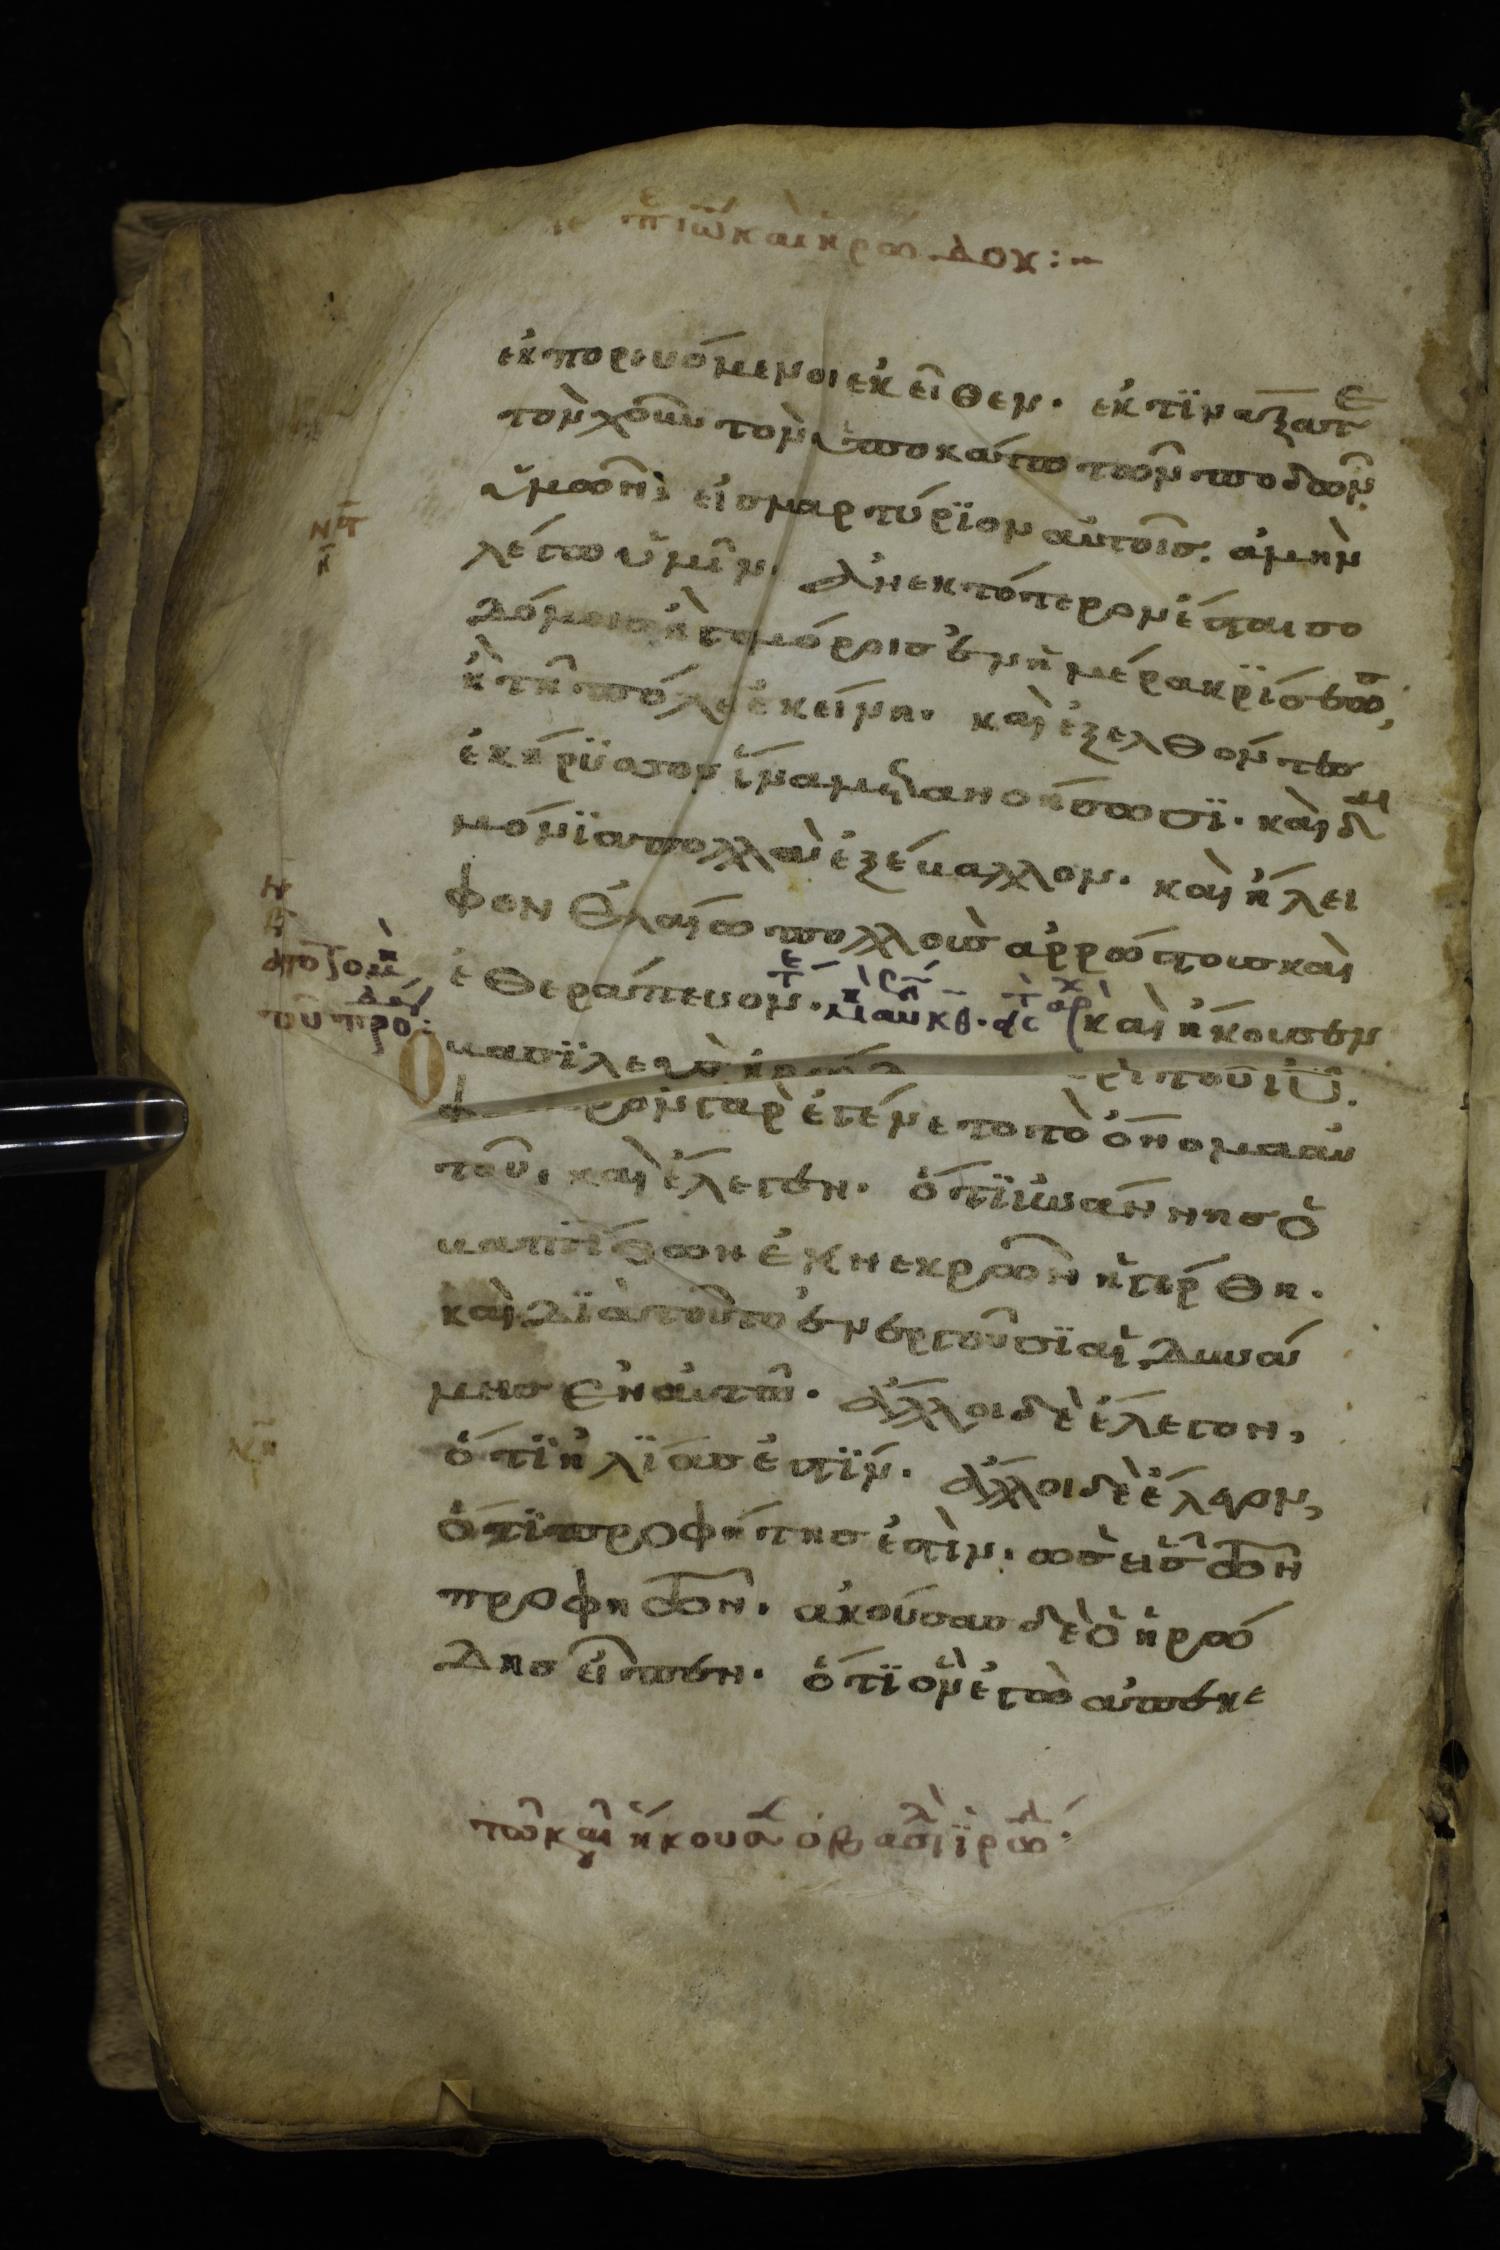 ἰω καὶ ἡρώδου:~
ἐκπορευόμενοι ἐκεῖθεν. ἐκτϊναξατε
τὸν χοῦν τὸν ὑποκάτω τῶν ποδῶν
ὑμῶν, εἰς μαρτύρϊον αὐτοῖς. ἀμὴν
λέγω ὑμῖν. ἀνεκτότερον ἔσται σο
δόμοις ἢ γομόρροις ἐν ἡμέρα κρϊσεως,
ἢ τῆ πόλει ἐκείνη. καὶ ἐξελθόντες
ἐκήρϋσσον ἵνα μετανοήσωσϊ. καὶ δαι
μόνϊα πολλὰ ἐξέβαλλον. καὶ ἤλει
φον ἐλαίω πολλοὺς ἀρρώστους καὶ
ἐθεράπευον. καὶ ἤκουσεν
ὁ βασϊλεὺς ἡρώδ ρὶ τοῦ ιυ.
φ ρὸν γὰρ ἐγένετο τὸ ὄνομα αὐ
τοῦ, καὶ ἔλεγεν. ὅτϊ ἰωάννης ὁ
βαπτίζων ἐκ νεκρῶν ἠγέρθη.
καὶ δϊὰ τοῦτο ἐνεργοῦσϊ αἱ δυνά
μεις ἐν αὐτῶ. ἄλλοι δὲ ἔλεγον,
ὅτϊ ἠλϊας ἐστϊν. ἄλλοι δὲ ἔλεγον,
ὅτϊ προφήτης ἐστὶν. ὡς εἷς τῶν
προφητῶν. ἀκούσας δὲ ὁ ἡρώ
δης εἶπεν. ὅτϊ ὃν ἐγὼ ἀπεκε
τῶ κ αι ἤκουσ ὁ βασι ἱρω